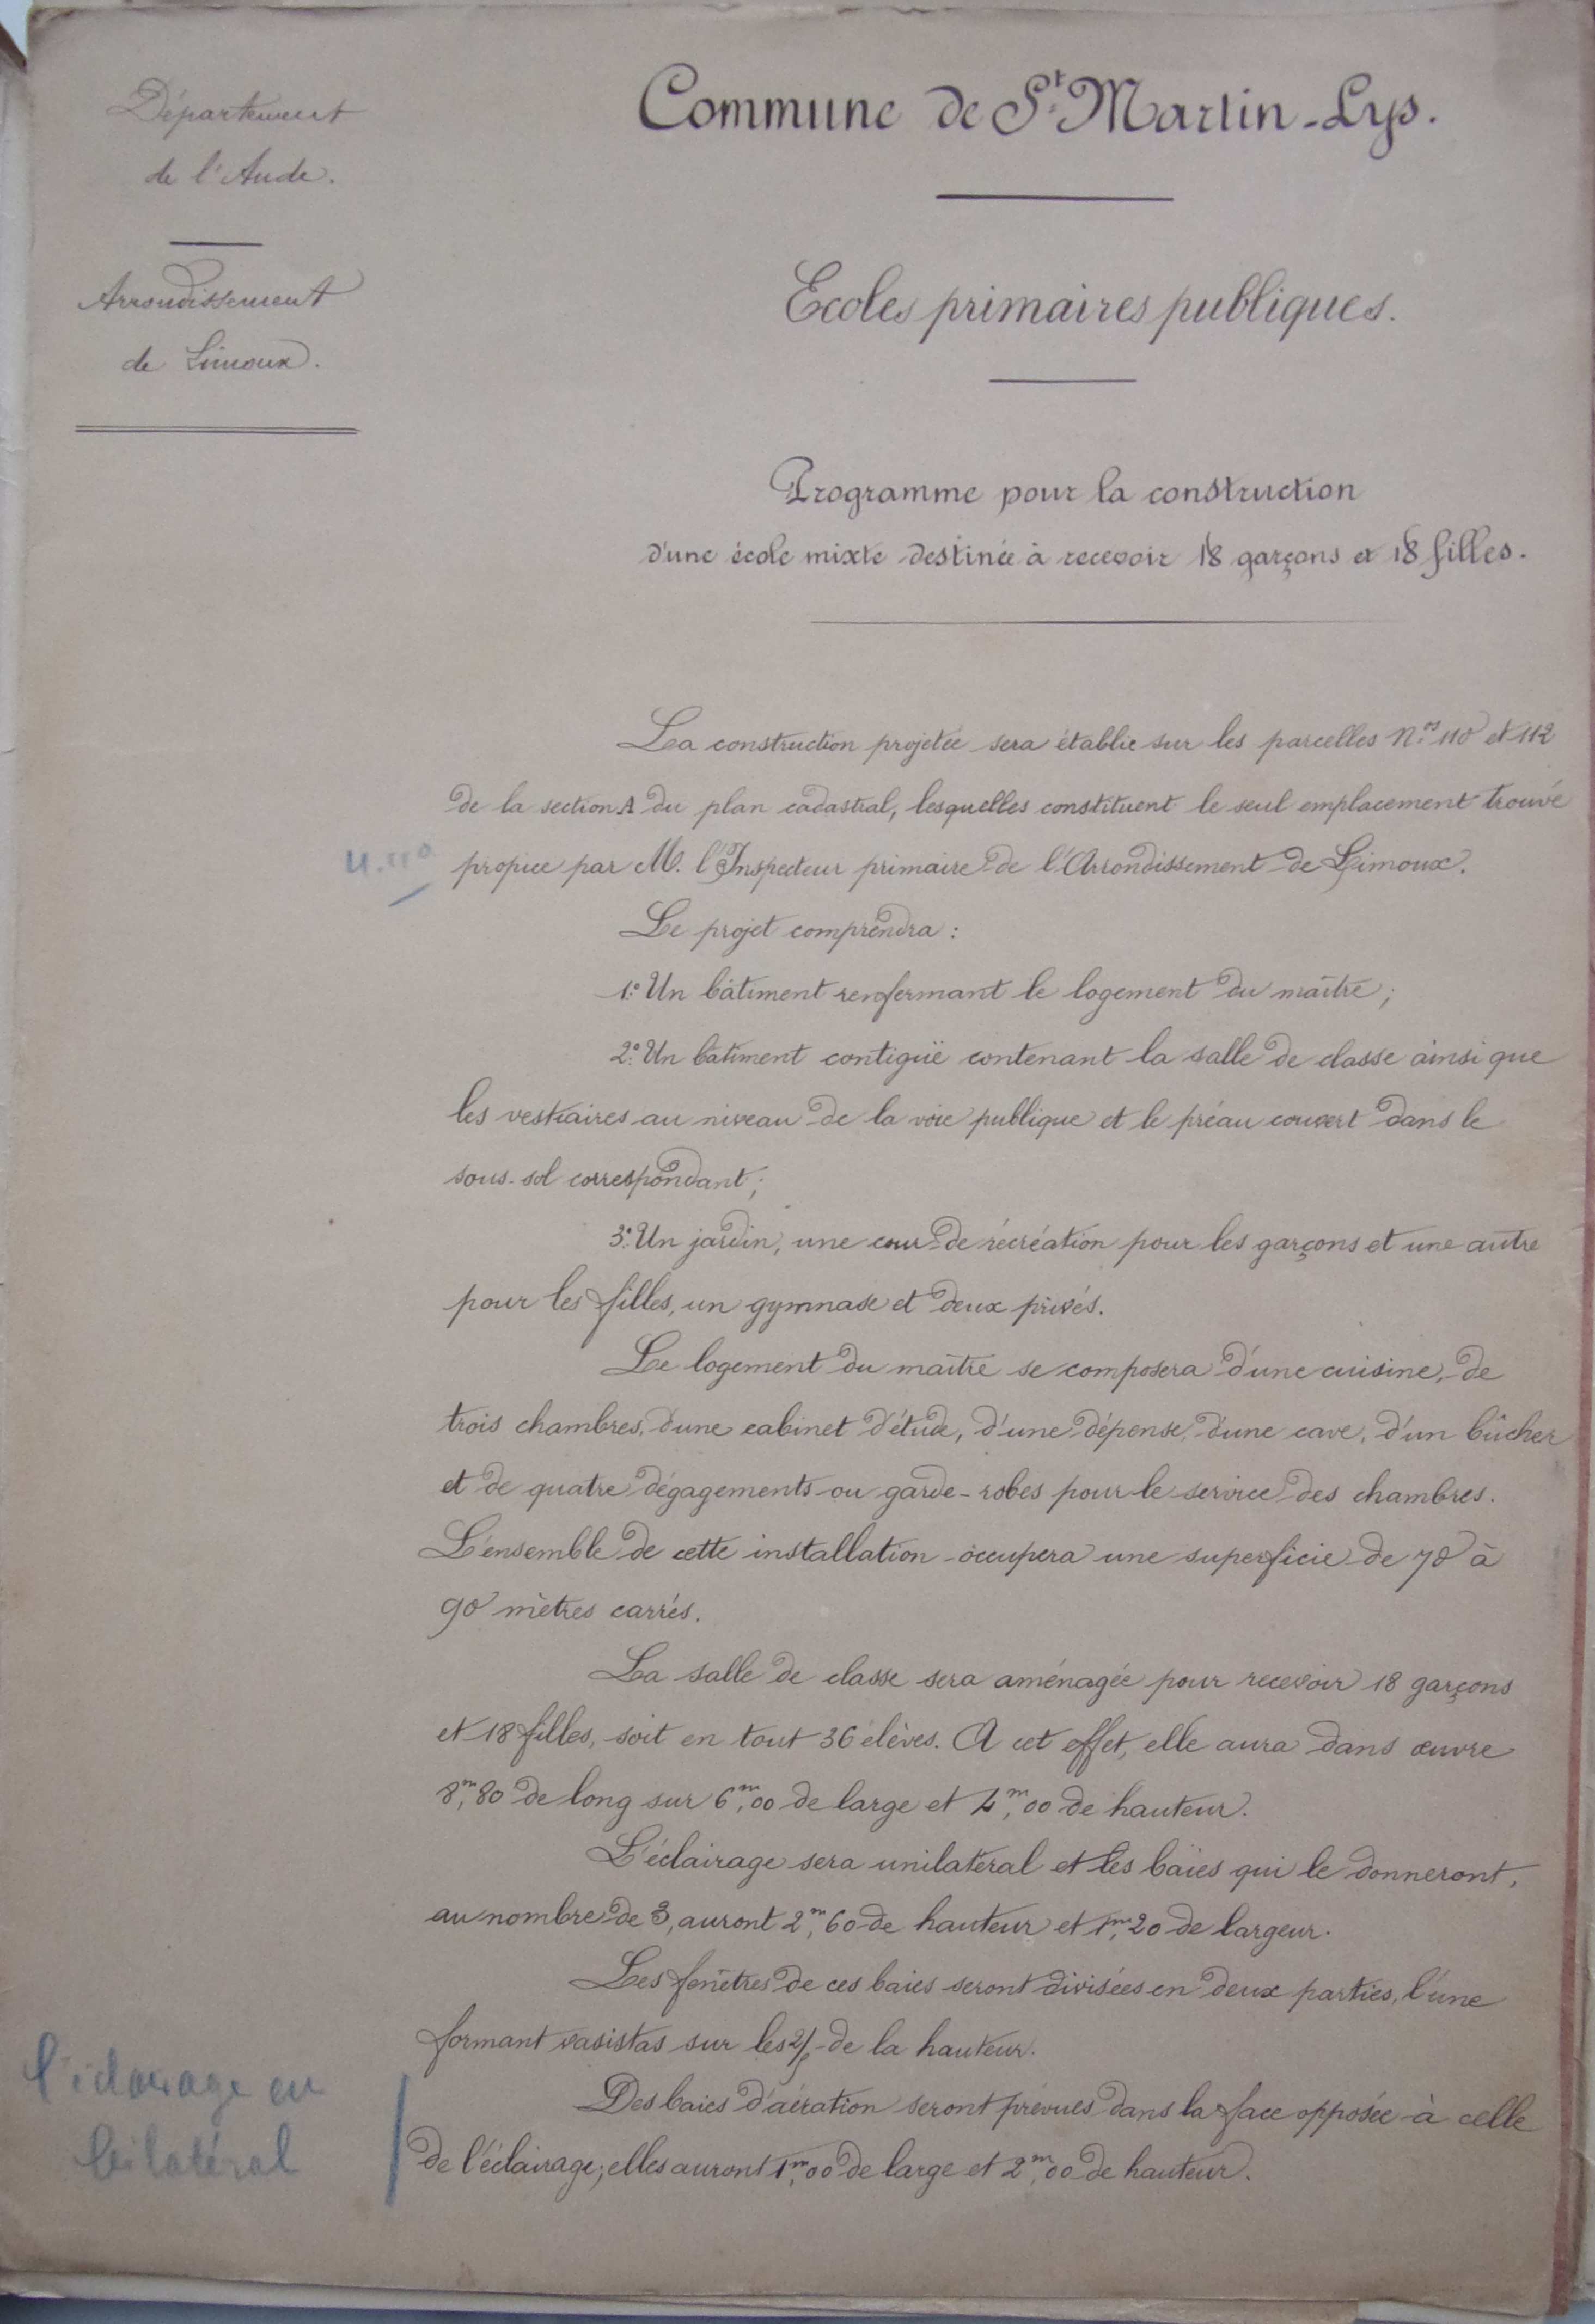 Département
de l'Aude.
Arrondissement
de Limoux.
Commune de St Martin-Lys.
Ecoles primaires publiques.
Programme pour la construction
d'une école mixte destinée à recevoir 18 garçons et 18 filles.
La construction projetée sera établie sur les parcelles Nos 110 et 112
de la section A du plan cadastral, lesquelles constituent le seul emplacement trouvé
propice par M. l'Inspecteur primaire de l'Arrondissement de Limoux.
Le projet comprendra :
1° Un bâtiment renfermant le logement du maître ;
2° Un bâtiment contiguë contenant la salle de classe ainsi que
les vestiaires au niveau de la voie publique et le préau couvert dans le
sous-sol correspondant ;
3° Un jardin, une cour de récréation pour les garçons et une autre
pour les filles, un gymnase et deux privés.
Le logement du maître se composera d'une cuisine, de
trois chambres, d'une cabinet d'étude, d'une dépense, d'une cave, d'un bûcher
et de quatre dégagements ou garde-robes pour le service des chambres.
L'ensemble de cette installation occupera une superficie de 70 à
90 mètres carrés.
La salle de classe sera aménagée pour recevoir 18 garçons
et 18 filles, soit en tout 36 élèves. A cet effet, elle aura dans œuvre
8m,80 de long sur 6m,00 de large et 4m,00 de hauteur.
L'éclairage sera unilatéral et les baies qui le donneront,
au nombre de 3, auront 2m,60 de hauteur et 1m,20 de largeur.
Les fenêtres de ces baies seront divisées en deux parties, l'une
formant vasistas sur les 2/5 de la hauteur.
Des baies d'aération seront prévues dans la face opposée à celle
de l'éclairage ; elles auront 1m,00 de large et 2m,00 de hauteur.
l'éclairage en
bilatéral